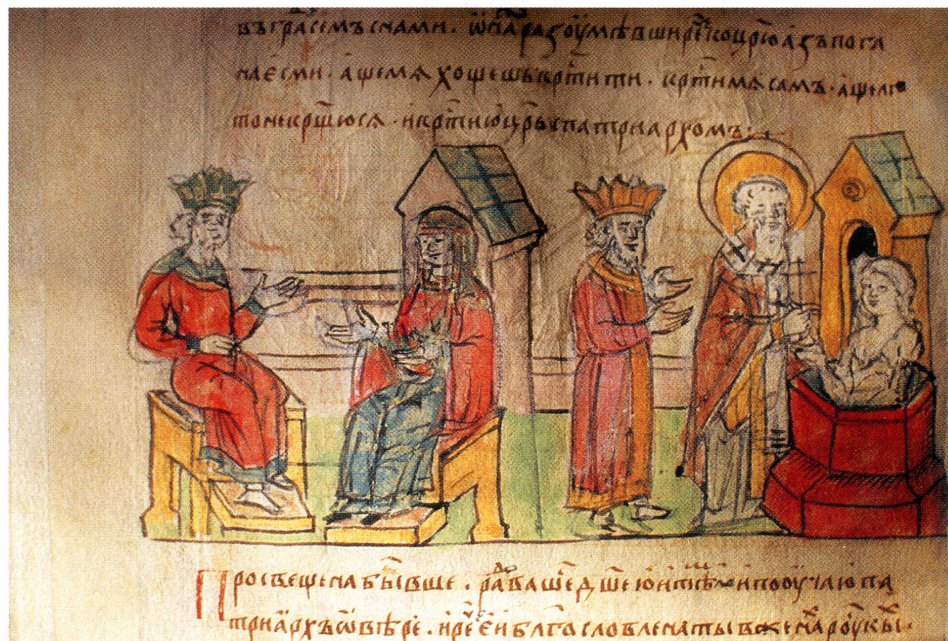 въградѣ семъ с нами. ѡна разоумѣвши реч҇ ко цр҃ю азъ пога
на есми. аще мѧ хощешь крт҇ити. крт҇и мѧ самъ. аще ли
то не крщ҇юсѧ. и крт҇и ю цр҃ь с патриархомъ.
Просвещена бывше. рад҇ваше д҃шею и тѣломъ и пооучаю па
триархъ ѡ вѣре. и реч҇ еи блг҇ословлена ты в женах҇ роускы.